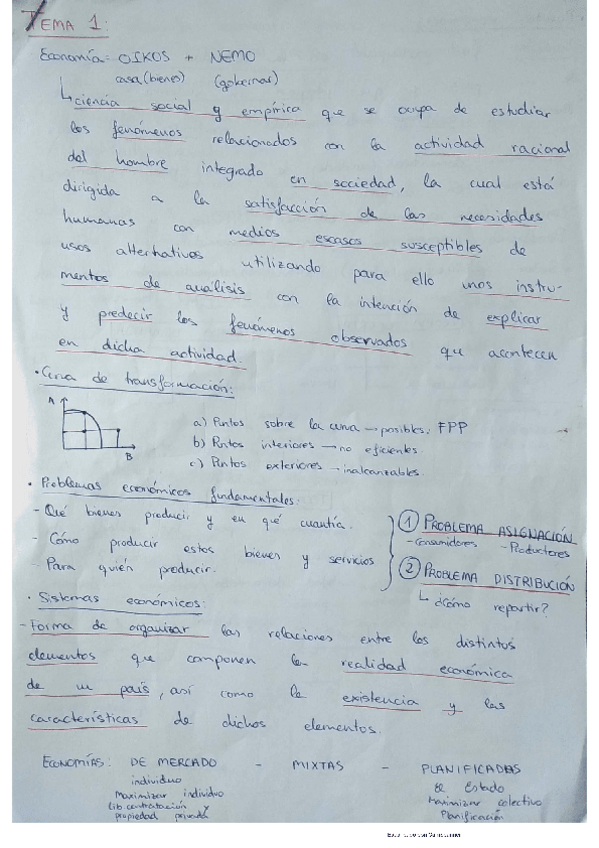 TEMA 1:
Economía: OIKOS + NEMO
casa (bienes) (gobernar)
ciencia social y empírica que se ocupa de estudiar
los fenómenos relacionados con la actividad racional
del hombre integrado en sociedad, la cual está
dirigida a la satisfacción de las necesidades
humanas con medios escasos susceptibles de
usos alternativos utilizando para ello unos instru-
mentos de análisis con la intención de explicar
y predecir los fenómenos observados que acontecen
en dicha actividad.
· Curva de transformación:
A
B
a) Puntos sobre la curva → posibles: FPP
b) Puntos interiores → no eficientes
c) Puntos exteriores → inalcanzables.
· Problemas económicos fundamentales:
- Qué bienes producir y en qué cuantía.
- Cómo producir estos bienes y servicios
- Para quién producir.
① PROBLEMA ASIGNACIÓN
- Consumidores - Productores
② PROBLEMA DISTRIBUCIÓN
↳ ¿Cómo repartir?
· Sistemas económicos:
- Forma de organizar las relaciones entre los distintos
elementos que componen la realidad económica
de un país, así como la existencia y las
características de dichos elementos.
ECONOMÍAS: DE MERCADO - MIXTAS - PLANIFICADAS
individuo
Maximizar individuo
lib contratación y
propiedad privada
El Estado
Maximizar colectivo
Planificación